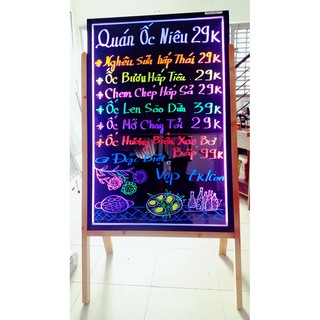 Quán Ốc Niêu 29K
+ Nghêu Sữa hấp Thái 29K
+ Ốc Bươu Hấp Tiêu 29K
+ Chem Chép Hấp Sả 29K
+ Ốc Len Sào Dừa 39K
+ Ốc Mỡ Cháy Tỏi 29K
+ Ốc Hương Biển Xào Bơ
Bắp 99K
Đặc Biệt
Vẹp 7K/Con